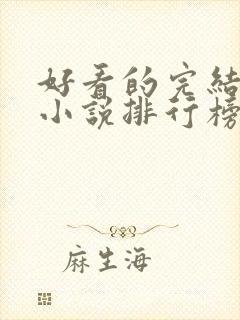 好看的完結
小說排行榜
麻生海